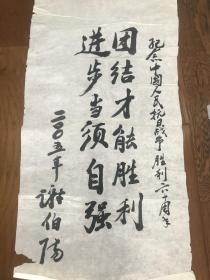 纪念中国人民抗日战争胜利六十周年
团结才能胜利
进步当须自强
二〇〇五年 谢伯阳